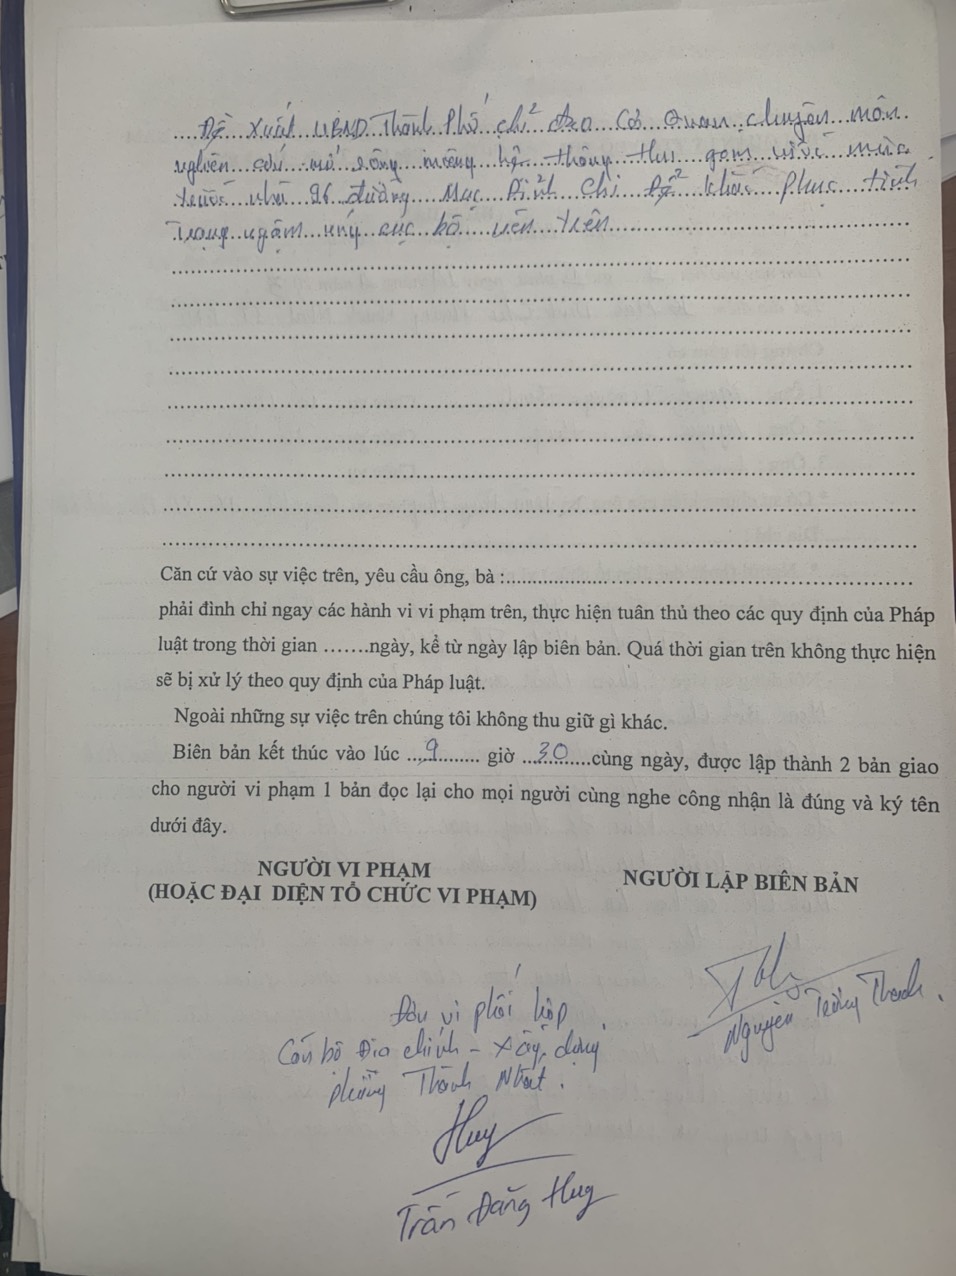 Đề xuất UBND Thành Phố chỉ đạo Cơ Quan chuyên môn
nghiên cứu mở rộng mương hệ thống thu gom nước mưa
trước nhà 96 đường Mạc Đĩnh Chi để khắc phục tình
Trạng ngậm úng cục bộ nên trên
Căn cứ vào sự việc trên, yêu cầu ông, bà :
phải đình chỉ ngay các hành vi vi phạm trên, thực hiện tuân thủ theo các quy định của Pháp
luật trong thời gian .......ngày, kể từ ngày lập biên bản. Quá thời gian trên không thực hiện
sẽ bị xử lý theo quy định của Pháp luật.
Ngoài những sự việc trên chúng tôi không thu giữ gì khác.
Biên bản kết thúc vào lúc ...9... giờ ...30...cùng ngày, được lập thành 2 bản giao
cho người vi phạm 1 bản đọc lại cho mọi người cùng nghe công nhận là đúng và ký tên
dưới đây.
NGƯỜI VI PHẠM
(HOẶC ĐẠI DIỆN TỔ CHỨC VI PHẠM)
NGƯỜI LẬP BIÊN BẢN
Nguyễn Thanh.
Đơn vị phối hợp
Cán bộ Địa chính - Xây dựng
phường Thành Nhất.
Huy
Trần Đăng Huy